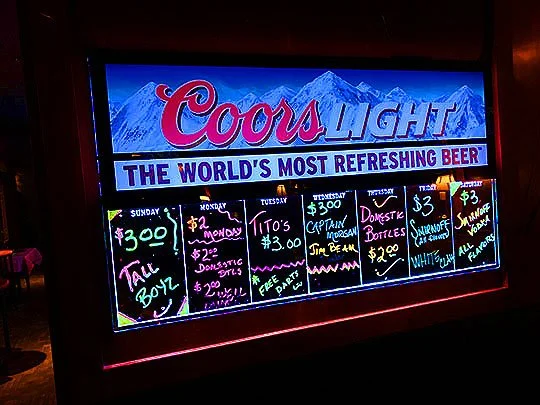 Coors LIGHT
THE WORLD'S MOST REFRESHING BEER
SUNDAY
$3.00
TALL
BOYZ
MONDAY
$2
MONDAY
$2.00
DOMESTIC
BTLS
$2.00
WELL
TUESDAY
TITO'S
$3.00
FREE
DARTS
WEDNESDAY
$3.00
CAPTAIN
MORGAN
JIM BEAM
THURSDAY
DOMESTIC
BOTTLES
$2.00
FRIDAY
$3
SMIRNOFF
WHITE CLAW
SATURDAY
$3
SMIRNOFF
VODKA
ALL
FLAVORS